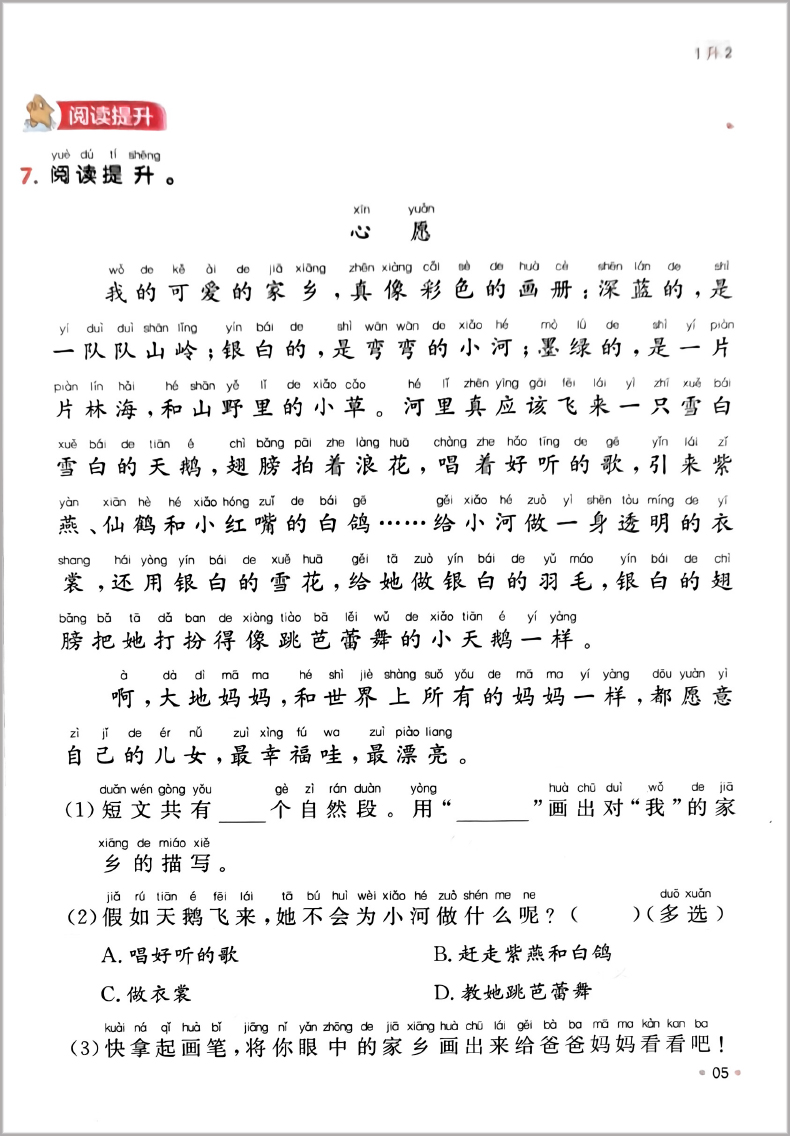 1升2
阅读提升
yuè dú tí shēng
7. 阅读提升。
xīn yuàn
心愿
wǒ de kě ài de jiā xiāng zhēn xiàng cǎi sè de huà cè shēn lán de shì
我的可爱的家乡,真像彩色的画册;深蓝的,是
yí duì duì shān lǐng yín bái de shì wān wān de xiǎo hé mò lǜ de shì yí piàn
一队队山岭;银白的,是弯弯的小河;墨绿的,是一片
piàn lín hǎi hé shān yě lǐ de xiǎo cǎo hé lǐ zhēn yìng gāi fēi lái yì zhī xuě bái
片林海,和山野里的小草。河里真应该飞来一只雪白
xuě bái de tiān é chì bǎng pāi zhe làng huā chàng zhe hǎo tīng de gē yǐn lái zǐ
雪白的天鹅,翅膀拍着浪花,唱着好听的歌,引来紫
yàn xiān hè hé xiǎo hóng zuǐ de bái gē gěi xiǎo hé zuò yì shēn tòu míng de yī
燕、仙鹤和小红嘴的白鸽……给小河做一身透明的衣
shang hái yòng yín bái de xuě huā gěi tā zuò yín bái de yǔ máo yín bái de chì
裳,还用银白的雪花,给她做银白的羽毛,银白的翅
bǎng bǎ tā dǎ ban de xiàng tiào bā lěi wǔ de xiǎo tiān é yí yàng
膀把她打扮得像跳芭蕾舞的小天鹅一样。
à dà dì mā ma hé shì jiè shàng suǒ yǒu de mā ma yí yàng dōu yuàn yì
啊,大地妈妈,和世界上所有的妈妈一样,都愿意
zì jǐ de ér nǚ zuì xìng fú wa zuì piào liang
自己的儿女,最幸福哇,最漂亮。
duǎn wén gòng yǒu gè zì rán duàn yòng huà chū duì wǒ de jiā
(1)短文共有____个自然段。用“______”画出对“我”的家
xiāng de miáo xiě
乡的描写。
jiǎ rú tiān é fēi lái tā bú huì wèi xiǎo hé zuò shén me ne duō xuǎn
(2)假如天鹅飞来,她不会为小河做什么呢?( )(多选)
A. 唱好听的歌 B. 赶走紫燕和白鸽
C. 做衣裳 D. 教她跳芭蕾舞
kuài ná qǐ huà bǐ jiāng nǐ yǎn zhōng de jiā xiāng huà chū lái gěi bà ba mā ma kàn kan ba
(3)快拿起画笔,将你眼中的家乡画出来给爸爸妈妈看看吧!
05